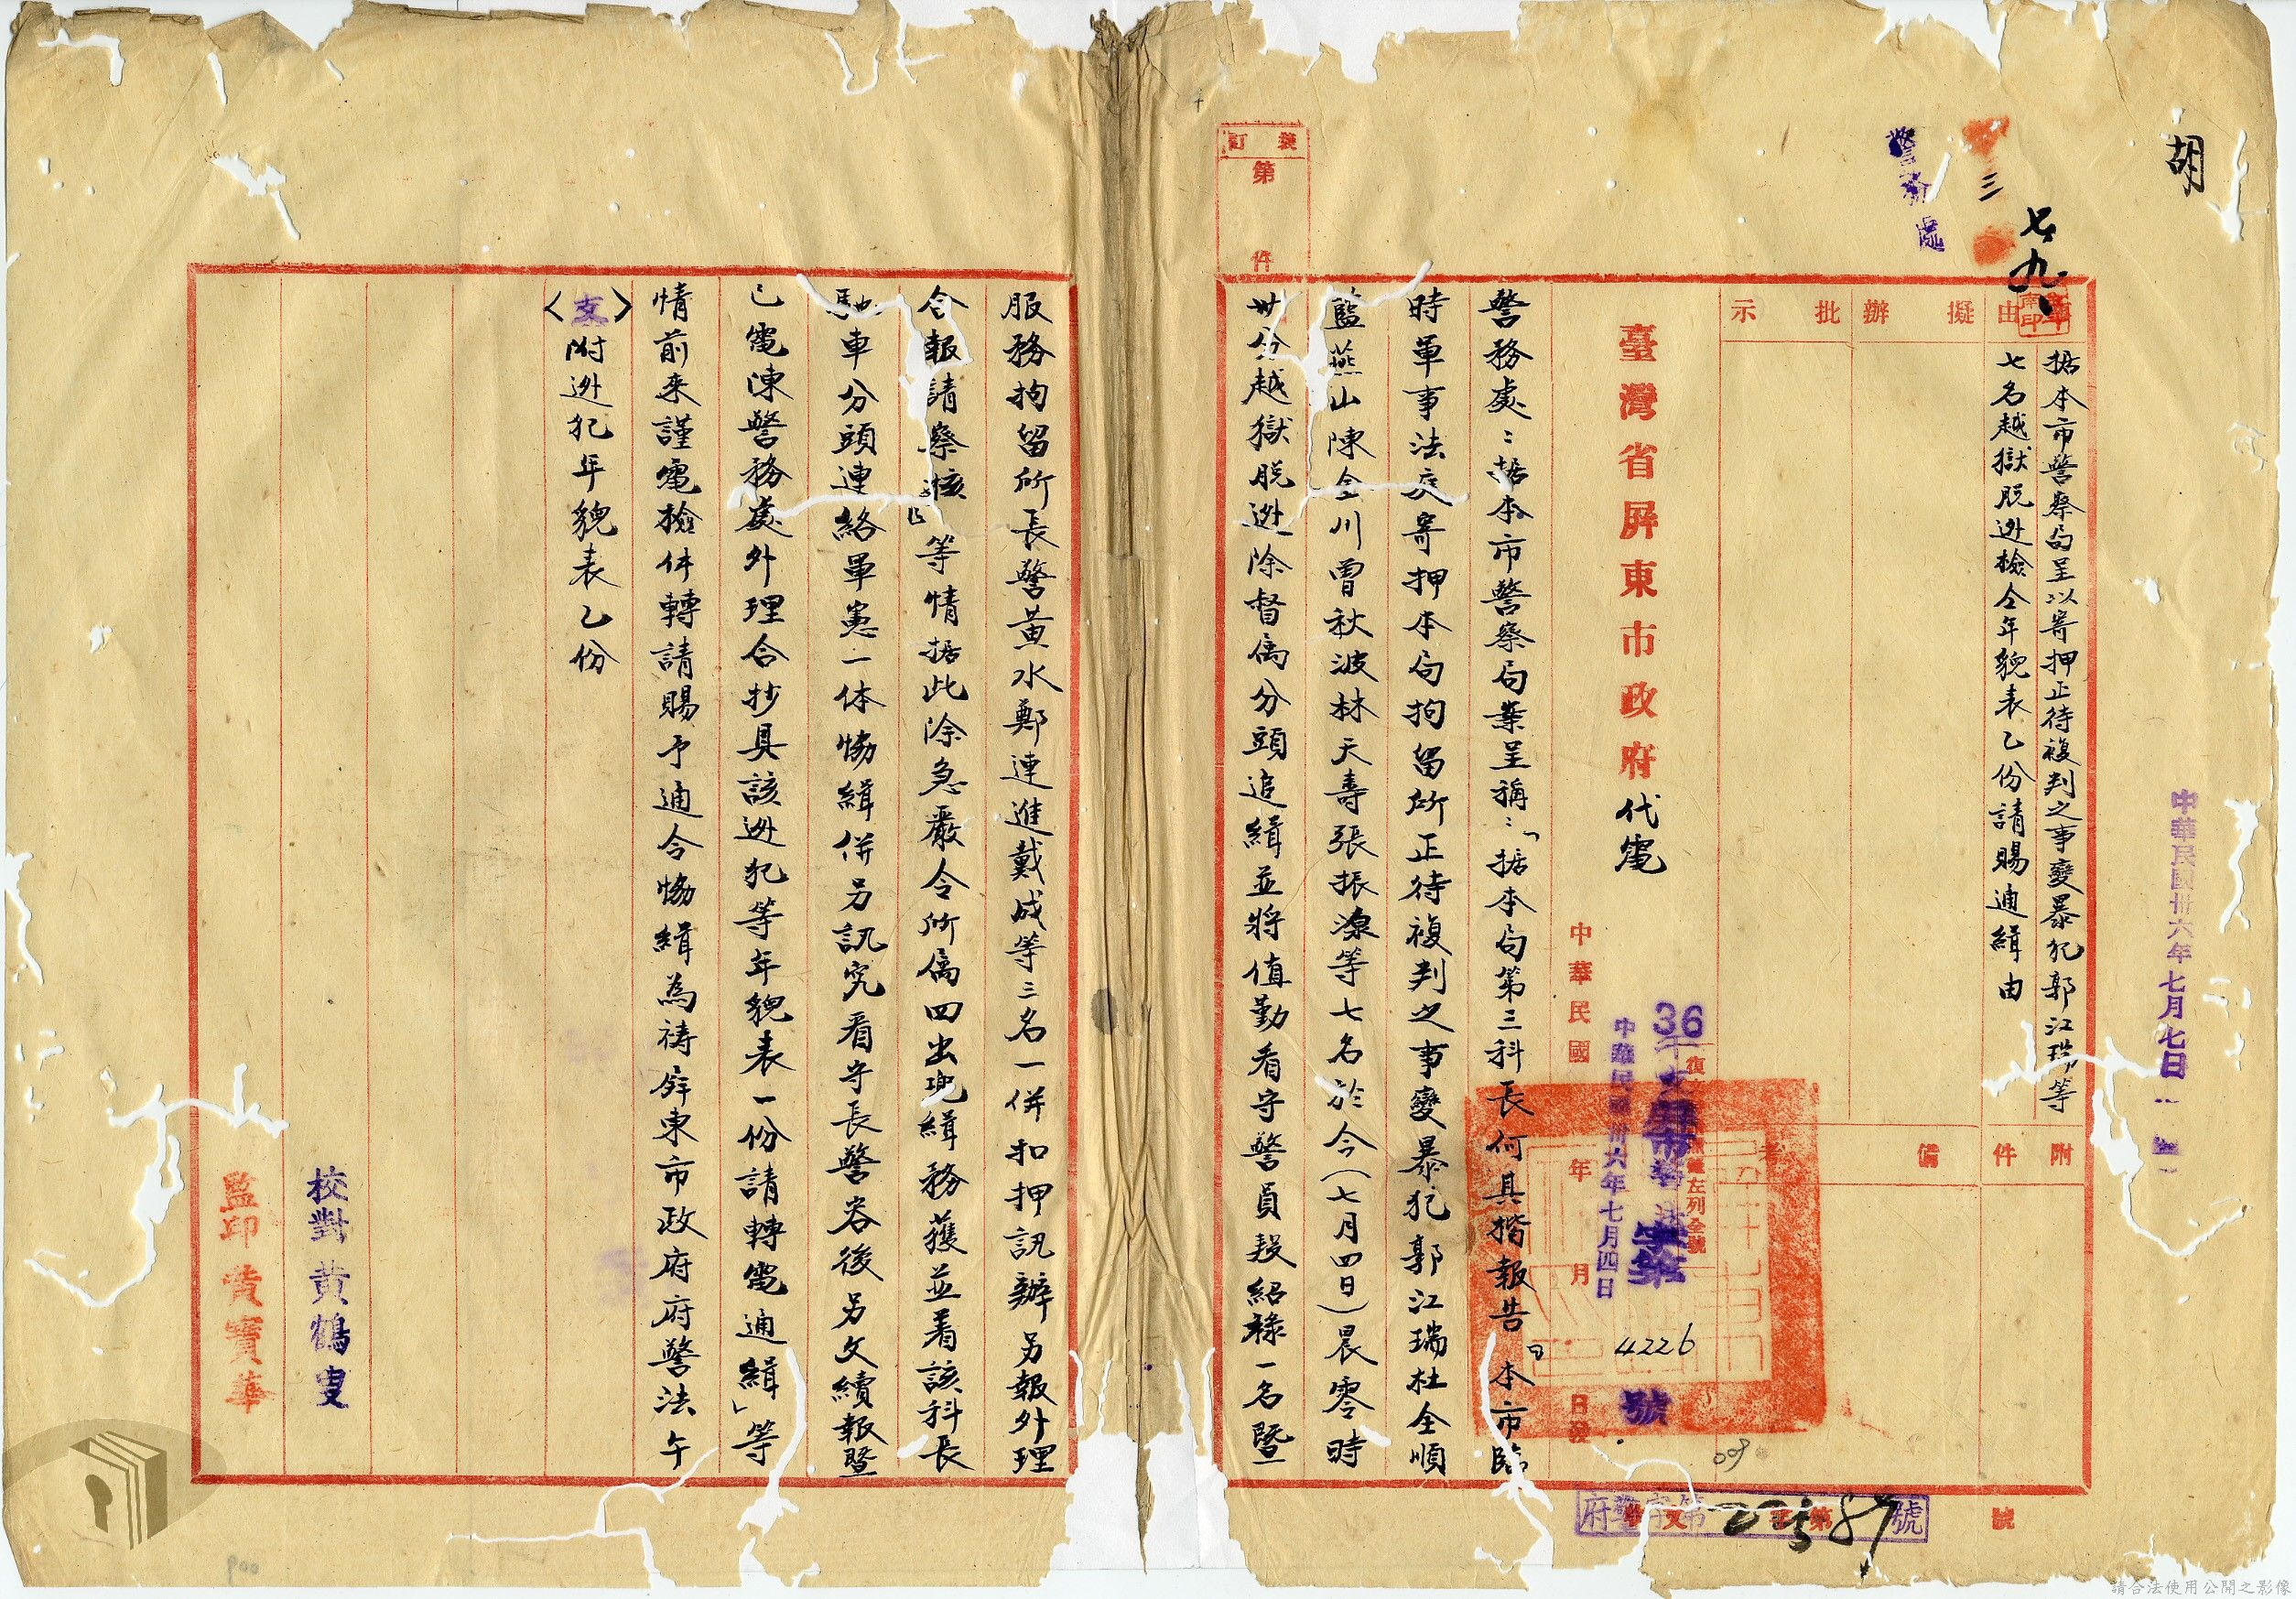 胡
七九
三
警務處
中華民國卅六年七月七日
由
据本市警察局呈以寄押正待複判之事變暴犯郭江瑞等
七名越獄脫逃檢仝年貌表乙份請賜通緝由
附件
擬辦
批示
備考
臺灣省屏東市政府代電
36
中華民國卅六年七月四日
4226
號
中華民國 年 月 日發
警務處：据本市警察局業呈稱：「据本局第三科長何具揩報告『本市臨
時軍事法庭寄押本局拘留所正待複判之事變暴犯郭江瑞杜全順
藍燕山陳金川曾秋波林天壽張振源等七名於今（七月四日）晨零時
卅分越獄脫逃除督屬分頭追緝並將值勤看守警員段紹祿一名暨
服務拘留所長警黃水鄭連進戴成等三名一併扣押訊辦另報外理
合報請察核』等情据此除急嚴令所屬四出兜緝務獲並着該科長
馳車分頭連絡軍憲一体協緝併另訊究看守長警咎後另文續報暨
已電陳警務處外理合抄具該逃犯等年貌表一份請轉電通緝」等
情前來謹電檢件轉請賜予通令協緝為禱屏東市政府府警法午
〈支〉附逃犯年貌表乙份
校對黃鶴叟
監印黃寶華
裝訂
第 件
府警字第 00587 號
收文 字第 號
請合法使用公開之影像